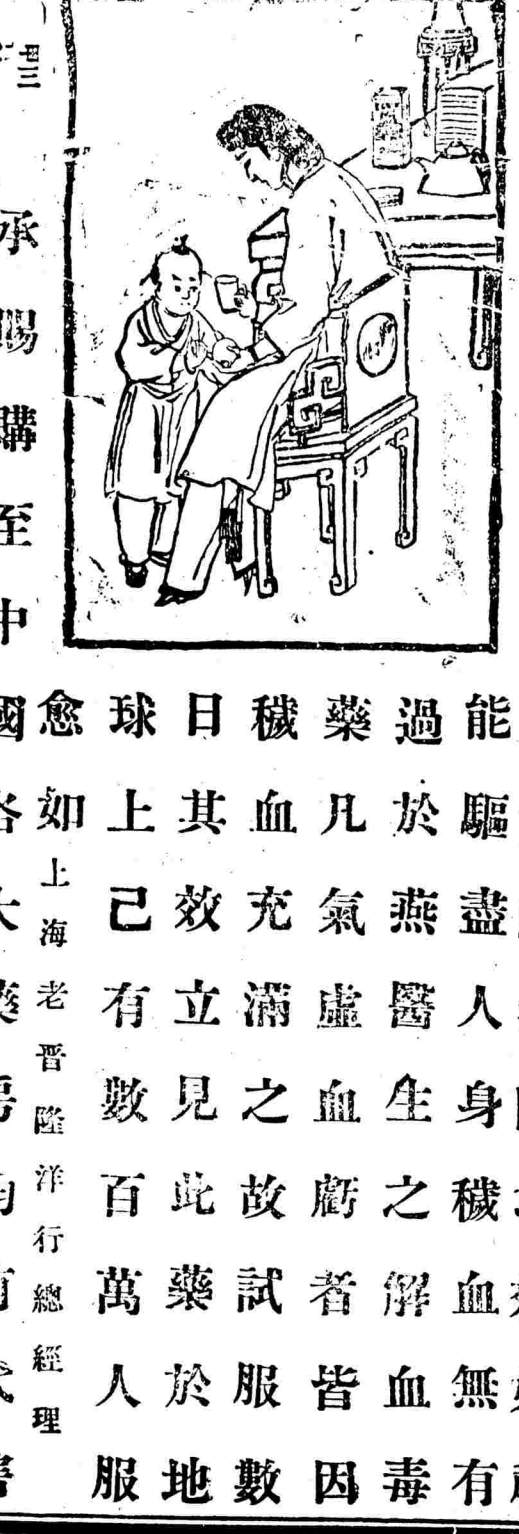 能驅盡人身穢血無有
過於燕醫生之解血毒
藥凡氣虛血虧者皆因
穢血充滿之故試服數
日其效立見此藥於地
球上已有數百萬人服
愈如上海老晉隆洋行總經理
承賜購至中國各大藥房均有